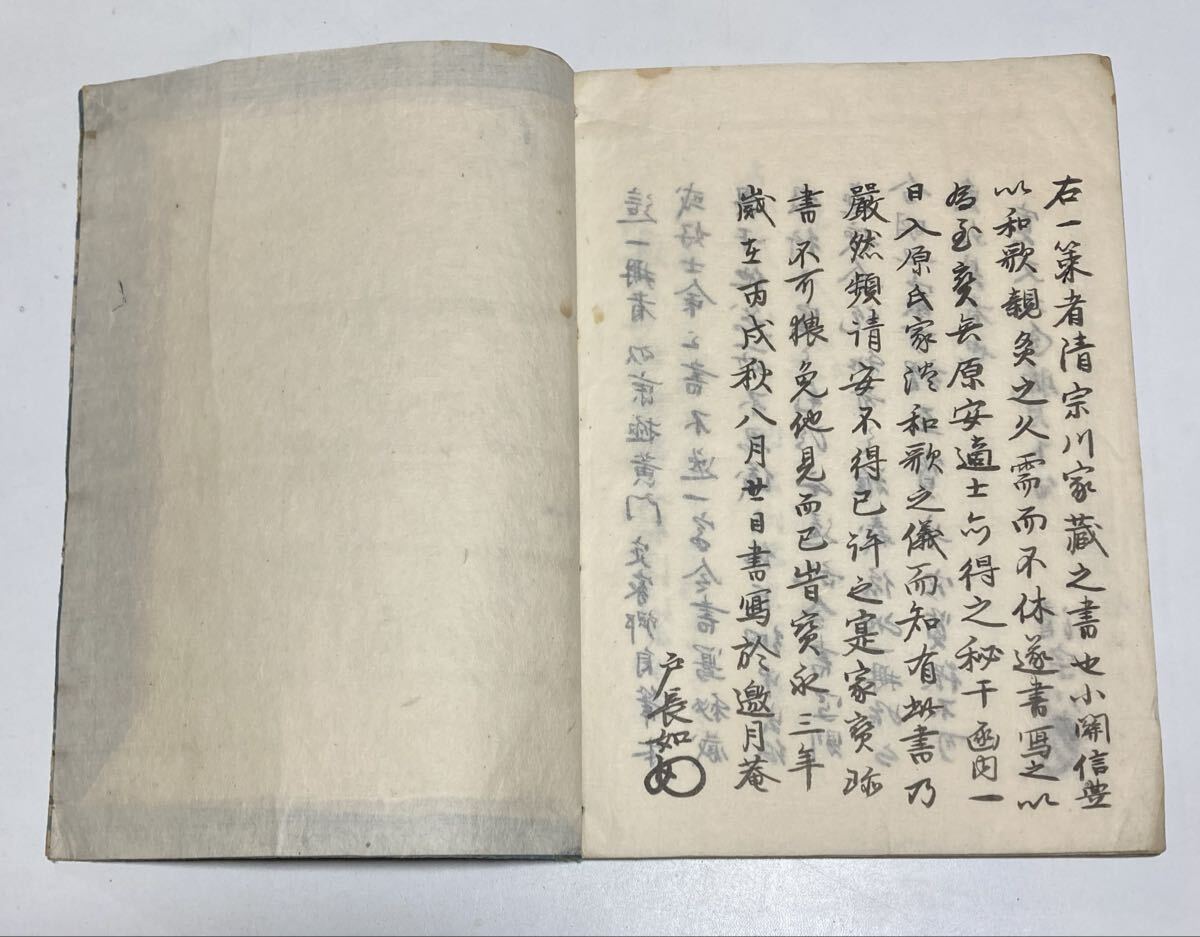 右一策者清宗川家蔵之書也小關信豊
以和歌親炙之久需而不休遂書寫之以
為至寳矣原安適士亦得之秘干函内一
日入原氏家淡和歌之儀而知有此書乃
嚴然頻請安不得已許之寔家寳珎
書不可猥免他見而已旹寳永三年
歳在丙戌秋八月廿日書寫於邀月菴
戸長如